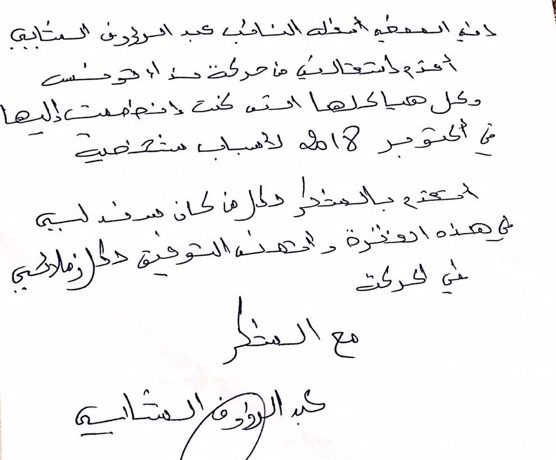 اني الممضي أسفله النائب عبد الرؤوف الشابي
أقدم استقالتي من حركة نداء تونس
وكل هياكلها التي كنت انضممت إليها
في أكتوبر 2018 لأسباب شخصية
أتقدم بالشكر لكل من كان سند لي
في هذه الفترة وأتمنى التوفيق لكل زملائي
في الحركة
مع الشكر
عبد الرؤوف الشابي